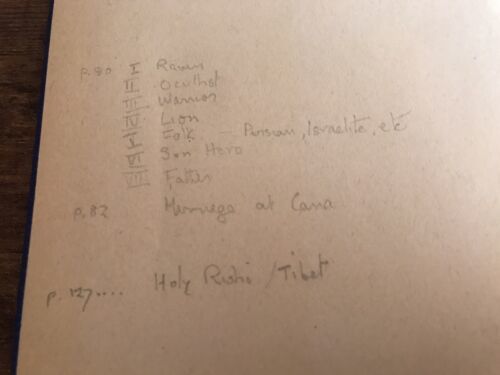 p.80 I Raven
II Occultist
III Warrior
IV Lion
V Folk — Persian, Israelite, etc
VI Sun Hero
VII Father
p.82 Marriage at Cana
p.127.... Holy Rishi / Tibet